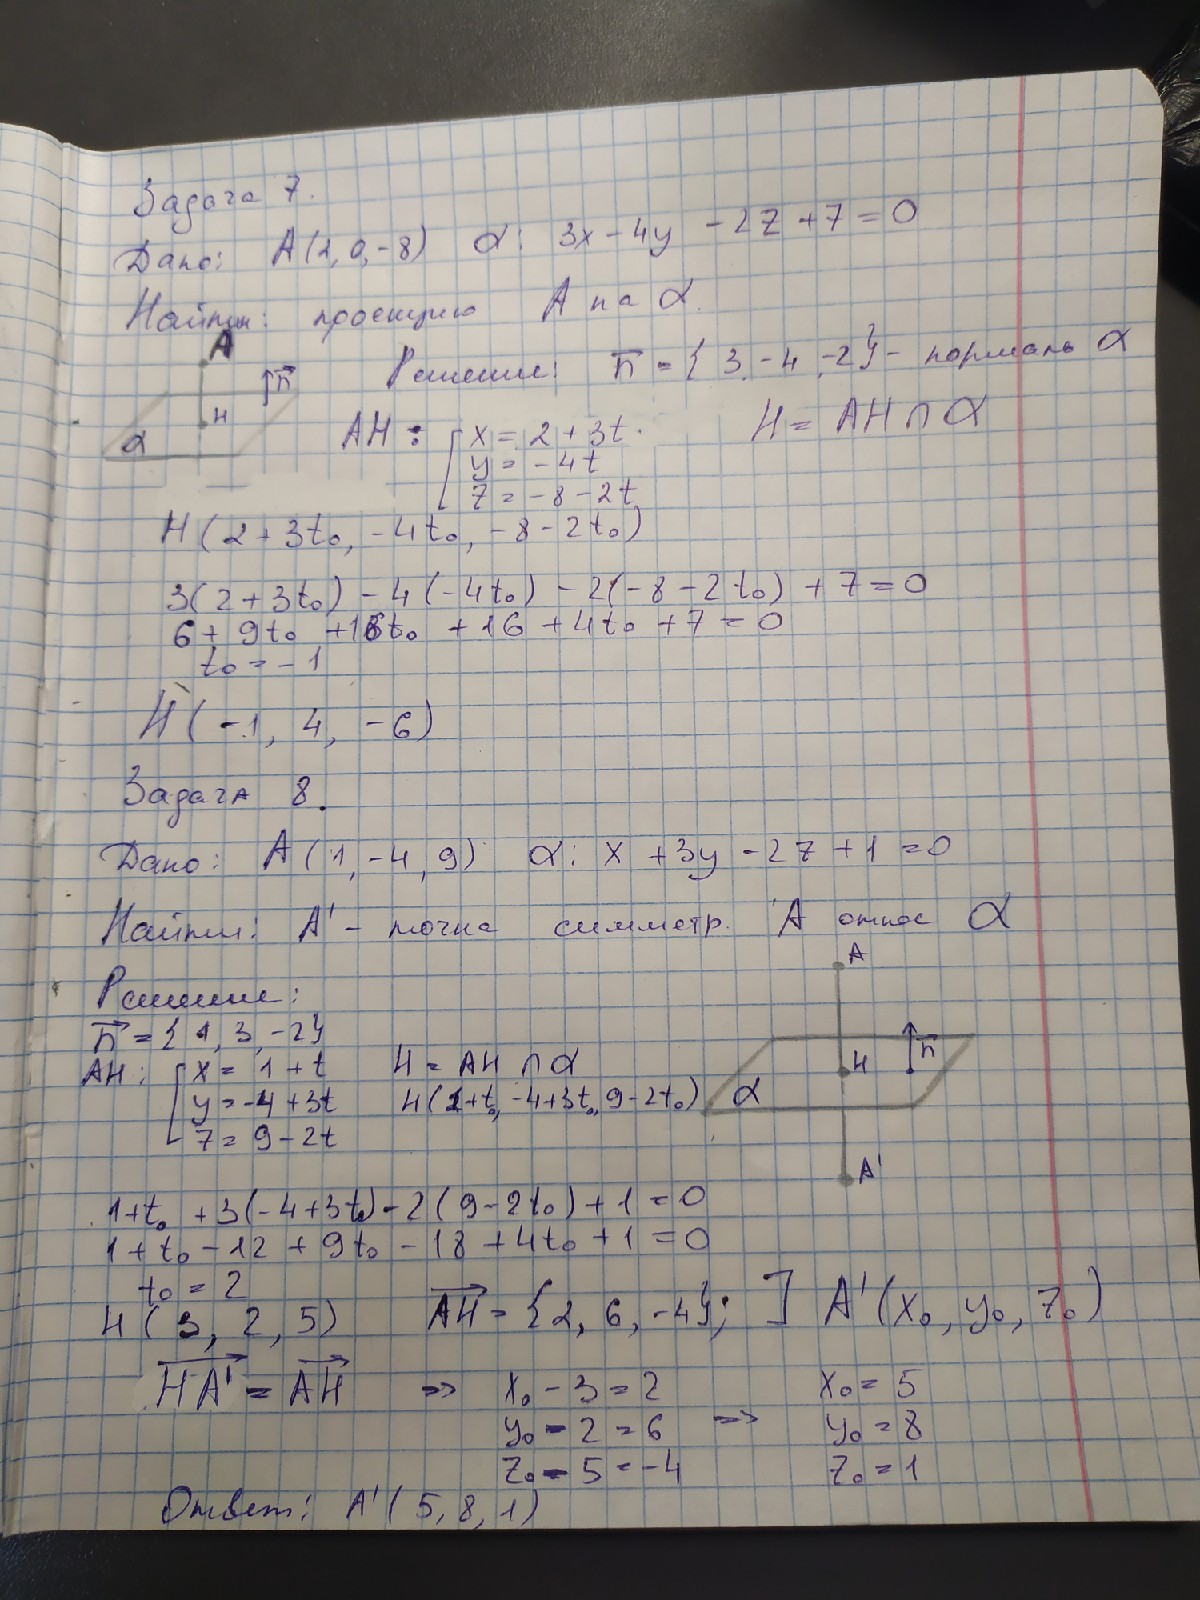 Задача 7.
Дано: A(2, 0, -8) α: 3x - 4y - 2z + 7 = 0
Найти: проекцию A на α.
A
n
H
α
Решение: n = {3, -4, -2} - нормаль α
AH: { x = 2 + 3t H = AH ∩ α
y = -4t
z = -8 - 2t
H(2 + 3t₀, -4t₀, -8 - 2t₀)
3(2 + 3t₀) - 4(-4t₀) - 2(-8 - 2t₀) + 7 = 0
6 + 9t₀ + 16t₀ + 16 + 4t₀ + 7 = 0
t₀ = -1
H(-1, 4, -6)
Задача 8.
Дано: A(1, -4, 9) α: x + 3y - 2z + 1 = 0
Найти: A' - точка симметр. A относ α
Решение:
n = {1, 3, -2}
AH: { x = 1 + t H = AH ∩ α
y = -4 + 3t H(1 + t₀, -4 + 3t₀, 9 - 2t₀)
z = 9 - 2t
A
n
H
α
A'
1 + t₀ + 3(-4 + 3t₀) - 2(9 - 2t₀) + 1 = 0
1 + t₀ - 12 + 9t₀ - 18 + 4t₀ + 1 = 0
t₀ = 2
H(3, 2, 5) AH = {2, 6, -4}; ] A'(x₀, y₀, z₀)
HA' = AH => x₀ - 3 = 2 x₀ = 5
y₀ - 2 = 6 => y₀ = 8
z₀ - 5 = -4 z₀ = 1
Ответ: A'(5, 8, 1)